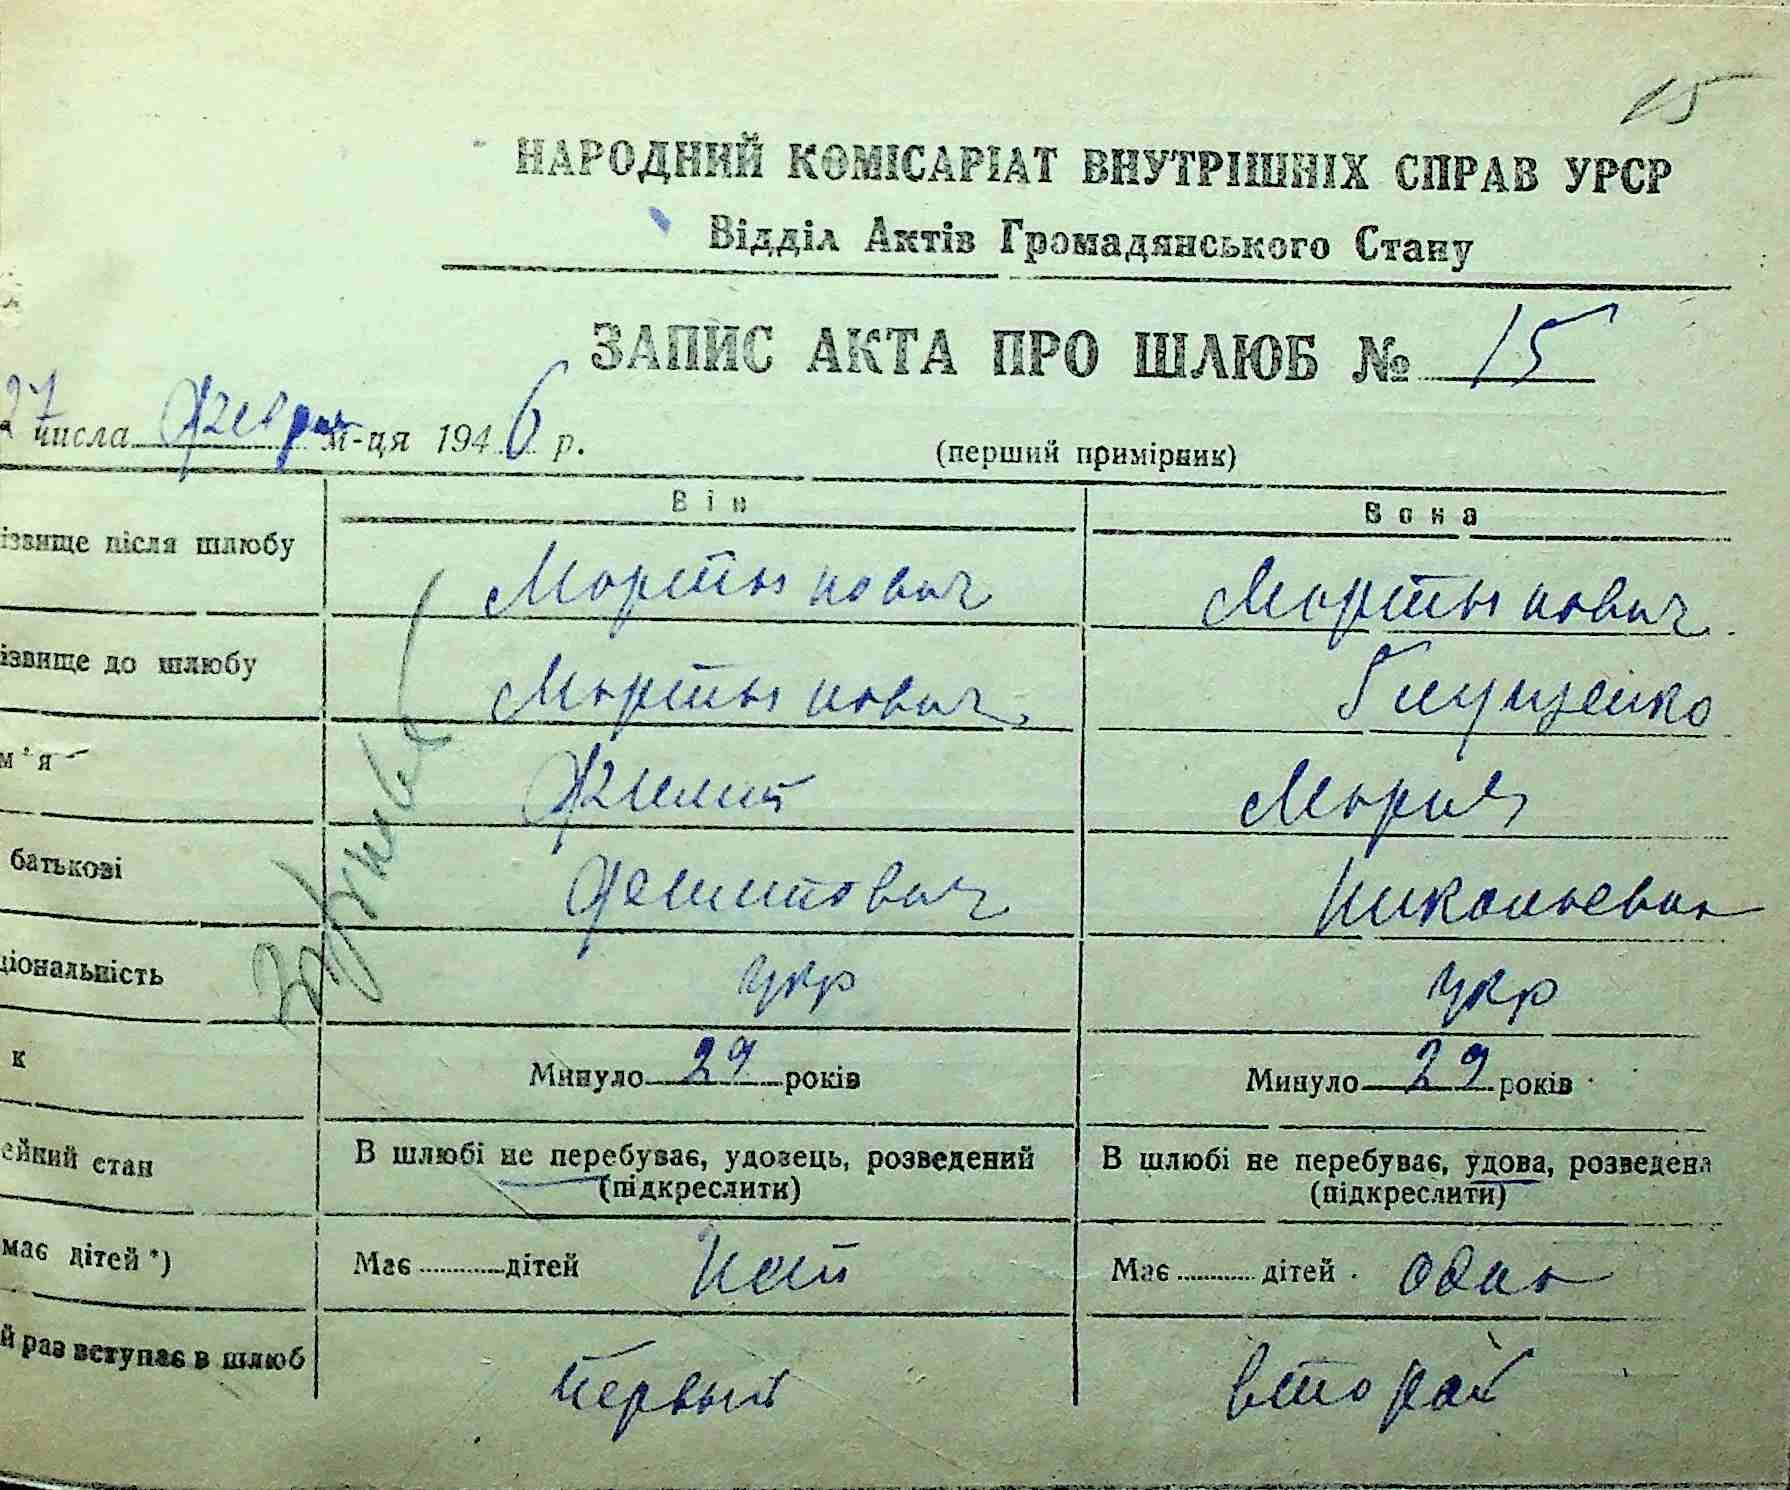 15
НАРОДНИЙ КОМІСАРІАТ ВНУТРІШНІХ СПРАВ УРСР
Відділ Актів Громадянського Стану
ЗАПИС АКТА ПРО ШЛЮБ № 15
27 числа Февра м-ця 1946 р. (перший примірник)
Він Вона
ізвище після шлюбу Мартынович Мартынович
ізвище до шлюбу Мартынович Глущенко
м'я Филип Мария
батькові Филипович Николаевна
ціональність укр укр
к Минуло 29 років Минуло 29 років
ейний стан В шлюбі не перебуває, удовець, розведений В шлюбі не перебуває, удова, розведена
(підкреслити) (підкреслити)
має дітей *) Має дітей Нет Має дітей один
й раз вступає в шлюб первый второй